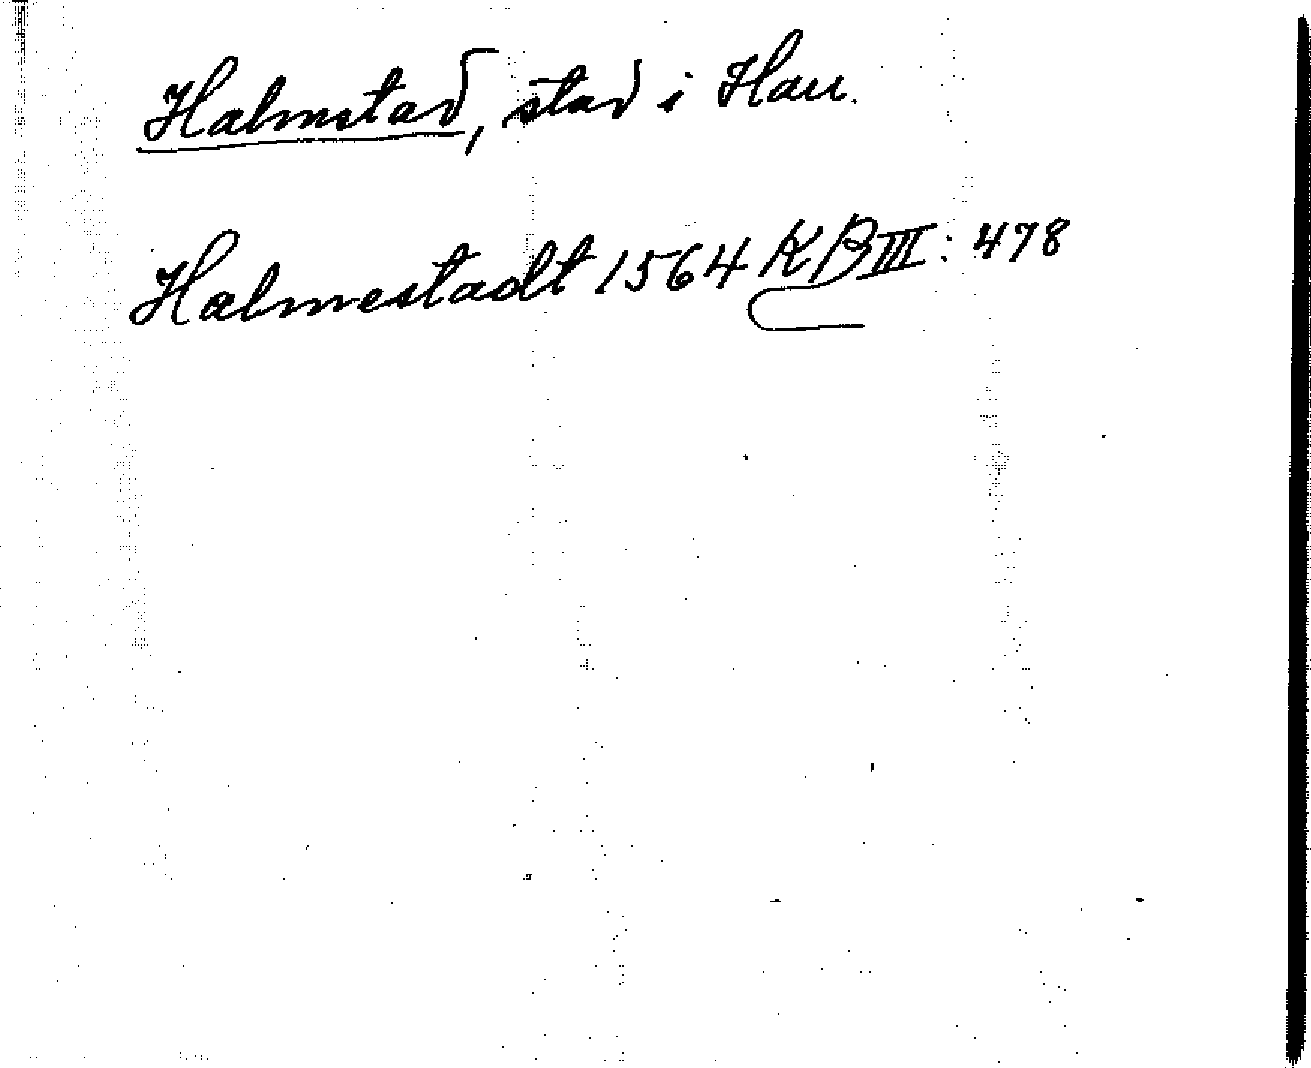 Halmstad, stad i Hall.
Halmestadt 1564 KB III: 478